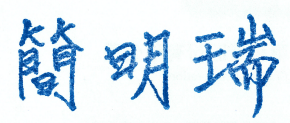 簡明瑞